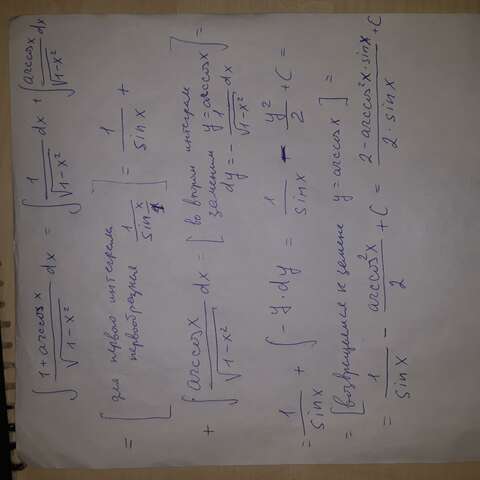 ∫ (1 + arccos x)/√(1-x²) dx = ∫ 1/√(1-x²) dx + ∫ arccos x/√(1-x²) dx
= [для первого интеграла первообразная 1/sin x] = 1/sin x +
+ ∫ arccos x/√(1-x²) dx = [во втором интеграле заменим y = arccos x dy = - 1/√(1-x²) dx] =
= 1/sin x + ∫ -y · dy = 1/sin x - y²/2 + C =
= [возвращаемся к замене y = arccos x] =
= 1/sin x - arccos²x/2 + C = (2 - arccos²x · sin x)/(2 · sin x) + C